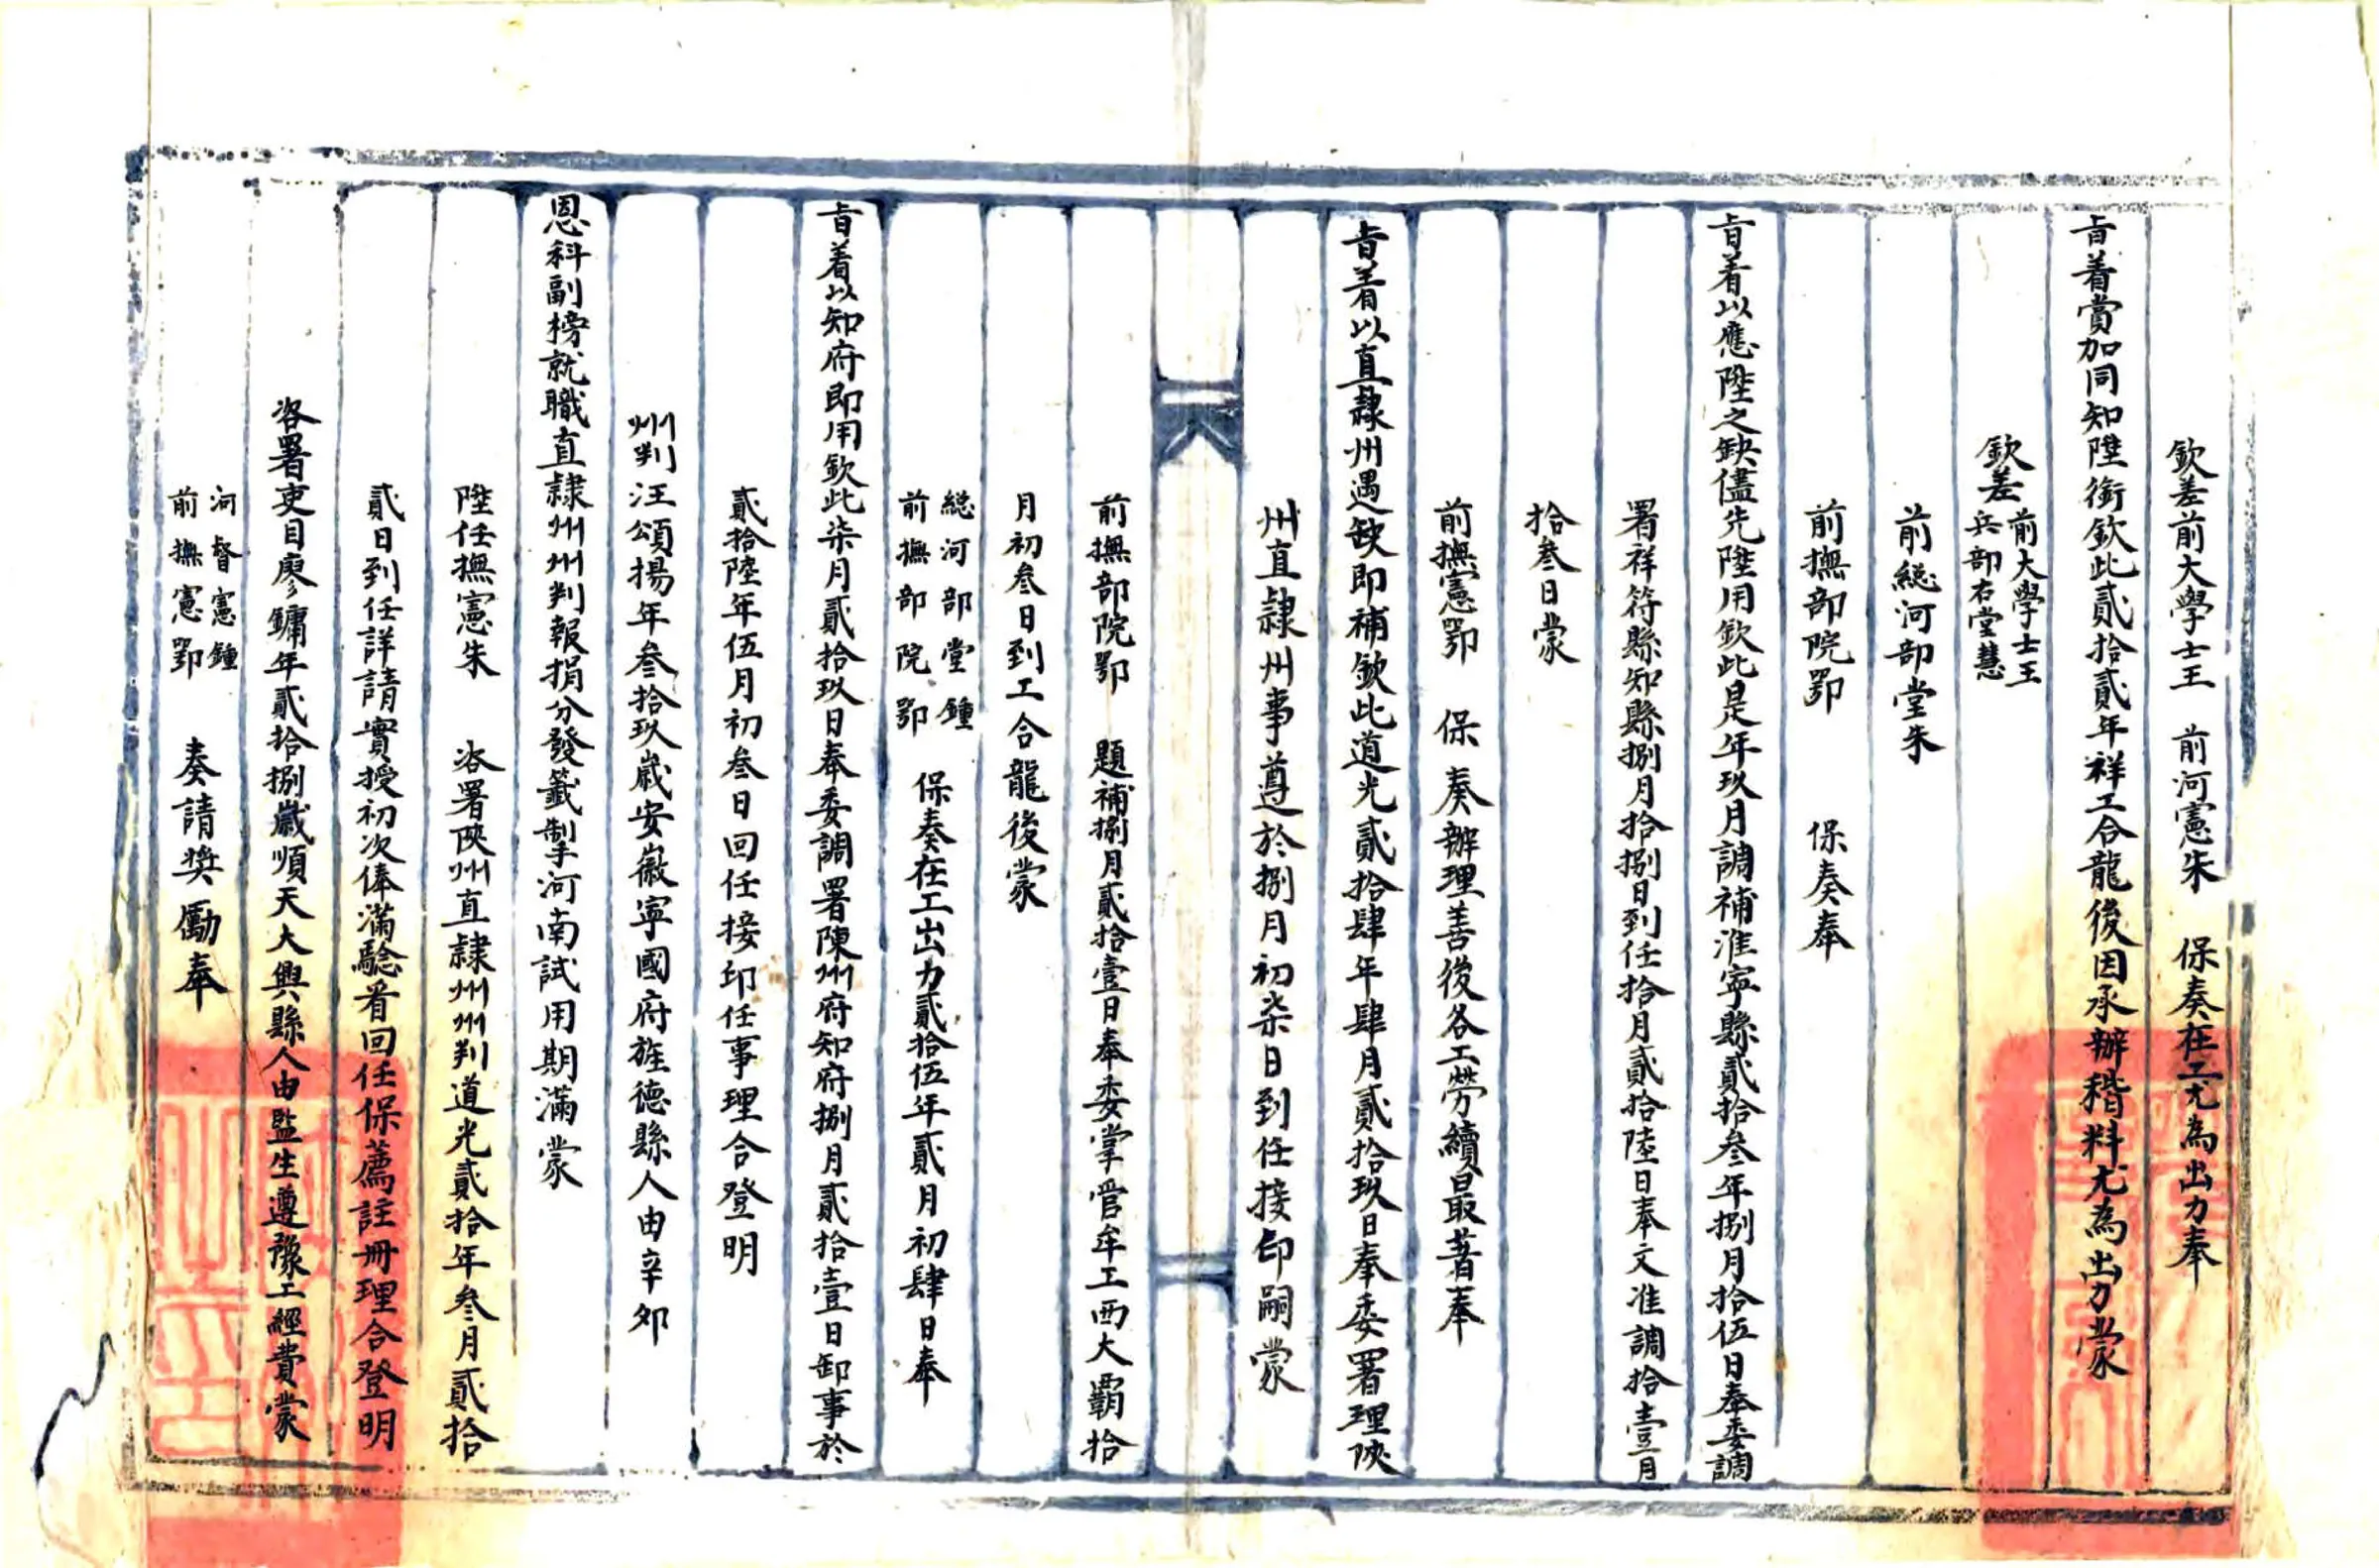 欽差前大學士王　前河憲朱　保奏在工尤為出力奉
旨着賞加同知陞銜欽此貳拾貳年祥工合龍後因承辦稭料尤為出力蒙
欽差前大學士王兵部右堂慧
前總河部堂朱
前撫部院鄂　保奏奉
旨着以應陞之缺儘先陞用欽此是年玖月調補淮寧縣貳拾叁年捌月拾伍日奉委調
署祥符縣知縣捌月拾捌日到任拾月貳拾陸日奉文准調拾壹月
拾叁日蒙
前撫憲鄂　保奏辦理善後各工勞績最著奉
旨着以直隸州遇缺即補欽此道光貳拾肆年肆月貳拾玖日奉委署理陝
州直隸州事遵於捌月初柒日到任接印嗣蒙
前撫部院鄂　題補捌月貳拾壹日奉委掌管牟工西大霸拾
月初叁日到工合龍後蒙
總河部堂鍾
前撫部院鄂　保奏在工出力貳拾伍年貳月初肆日奉
旨着以知府即用欽此柒月貳拾玖日奉委調署陳州府知府捌月貳拾壹日卸事於
貳拾陸年伍月初叁日回任接印任事理合登明
州判汪頌揚年叁拾玖歲安徽寧國府旌德縣人由辛夘
恩科副榜就職直隸州州判報捐分發籤掣河南試用期滿蒙
陞任撫憲朱　咨署陝州直隸州州判道光貳拾年叁月貳拾
貳日到任詳請實授初次俸滿驗看回任保薦註冊理合登明
咨署吏目廖鏞年貳拾捌歲順天大興縣人由監生遵豫工經費蒙
河督憲鍾
前撫憲鄂　奏請奬勵奉